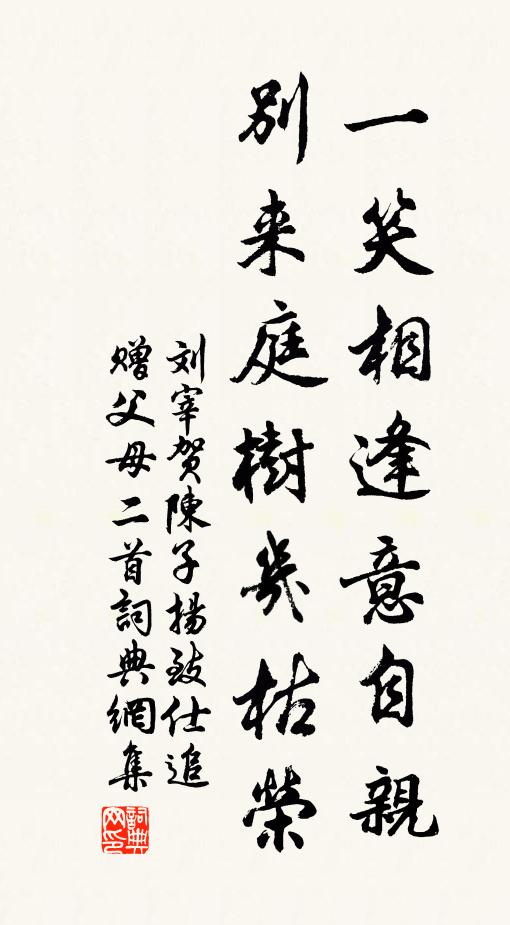 一笑相逢意自親
別来庭樹幾枯榮
刘宰賀陳子揚致仕追
赠父母二首詞典網集
詞典
网印